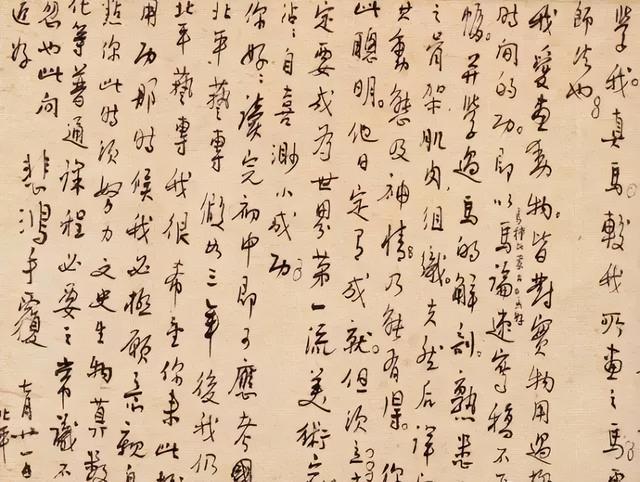 學我。真馬較我所畫之馬更
師法也。
我愛畫動物。皆對實物用過極
時间的功。即以馬論。速寫稿不下
幅。并學過馬的解剖。熟悉
之骨架肌肉组織。夫然后詳
其動態及神情。乃能有得。你
此聰明。他日定有成就。但须立
定要成為世界第一流美術家
沾沾自喜渺小成功。
你好好讀完初中即可應考國
北平藝專 假如三年後我仍
北平藝專我很希望你來此
用功那時候我必極願意親自
點你此時须努力文史生物算数
化等普通課程必要之常識不
忽也此问
近好
悲鴻手覆
七月廿一日
北平